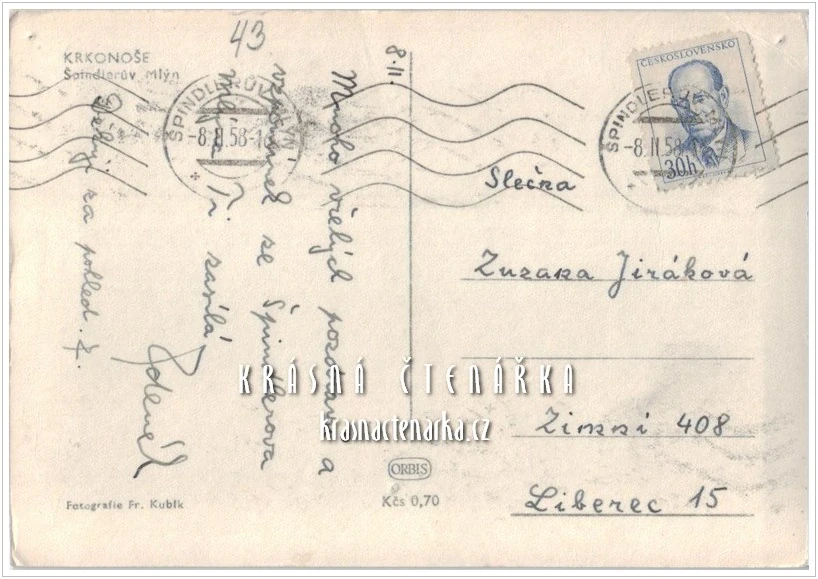 43
KRKONOŠE
Špindlerův Mlýn
ŠPINDLERŮV MLÝN
-8.II.58-1
8.II.
Mnoho vřelých pozdravů a
vzpomínek ze Špindlerova
mlýna Ti zasílá
Zdeněk
Děkuji za pohled. Z.
Fotografie Fr. Kubík
ORBIS
Kčs 0,70
ČESKOSLOVENSKO
30h
ŠPINDLERŮV
-8.II.58
Slečna
Zuzana Jiráková
Zimní 408
Liberec 15
KRÁSNÁ ČTENÁŘKA
krasnactenarka.cz